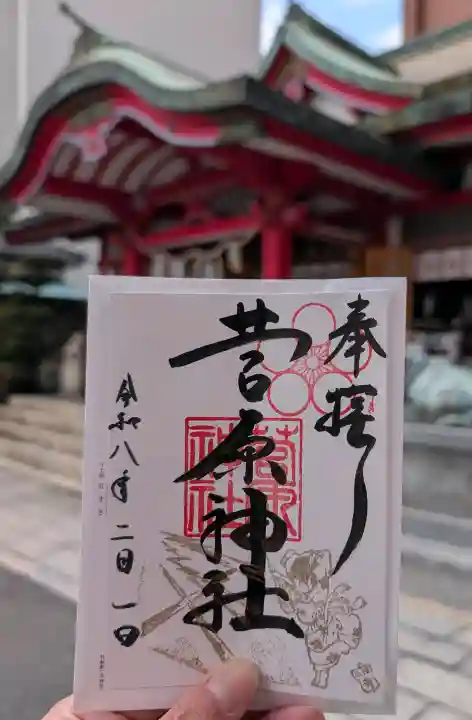 奉拝
菅原神社
菅原神社
令和八年二月一日